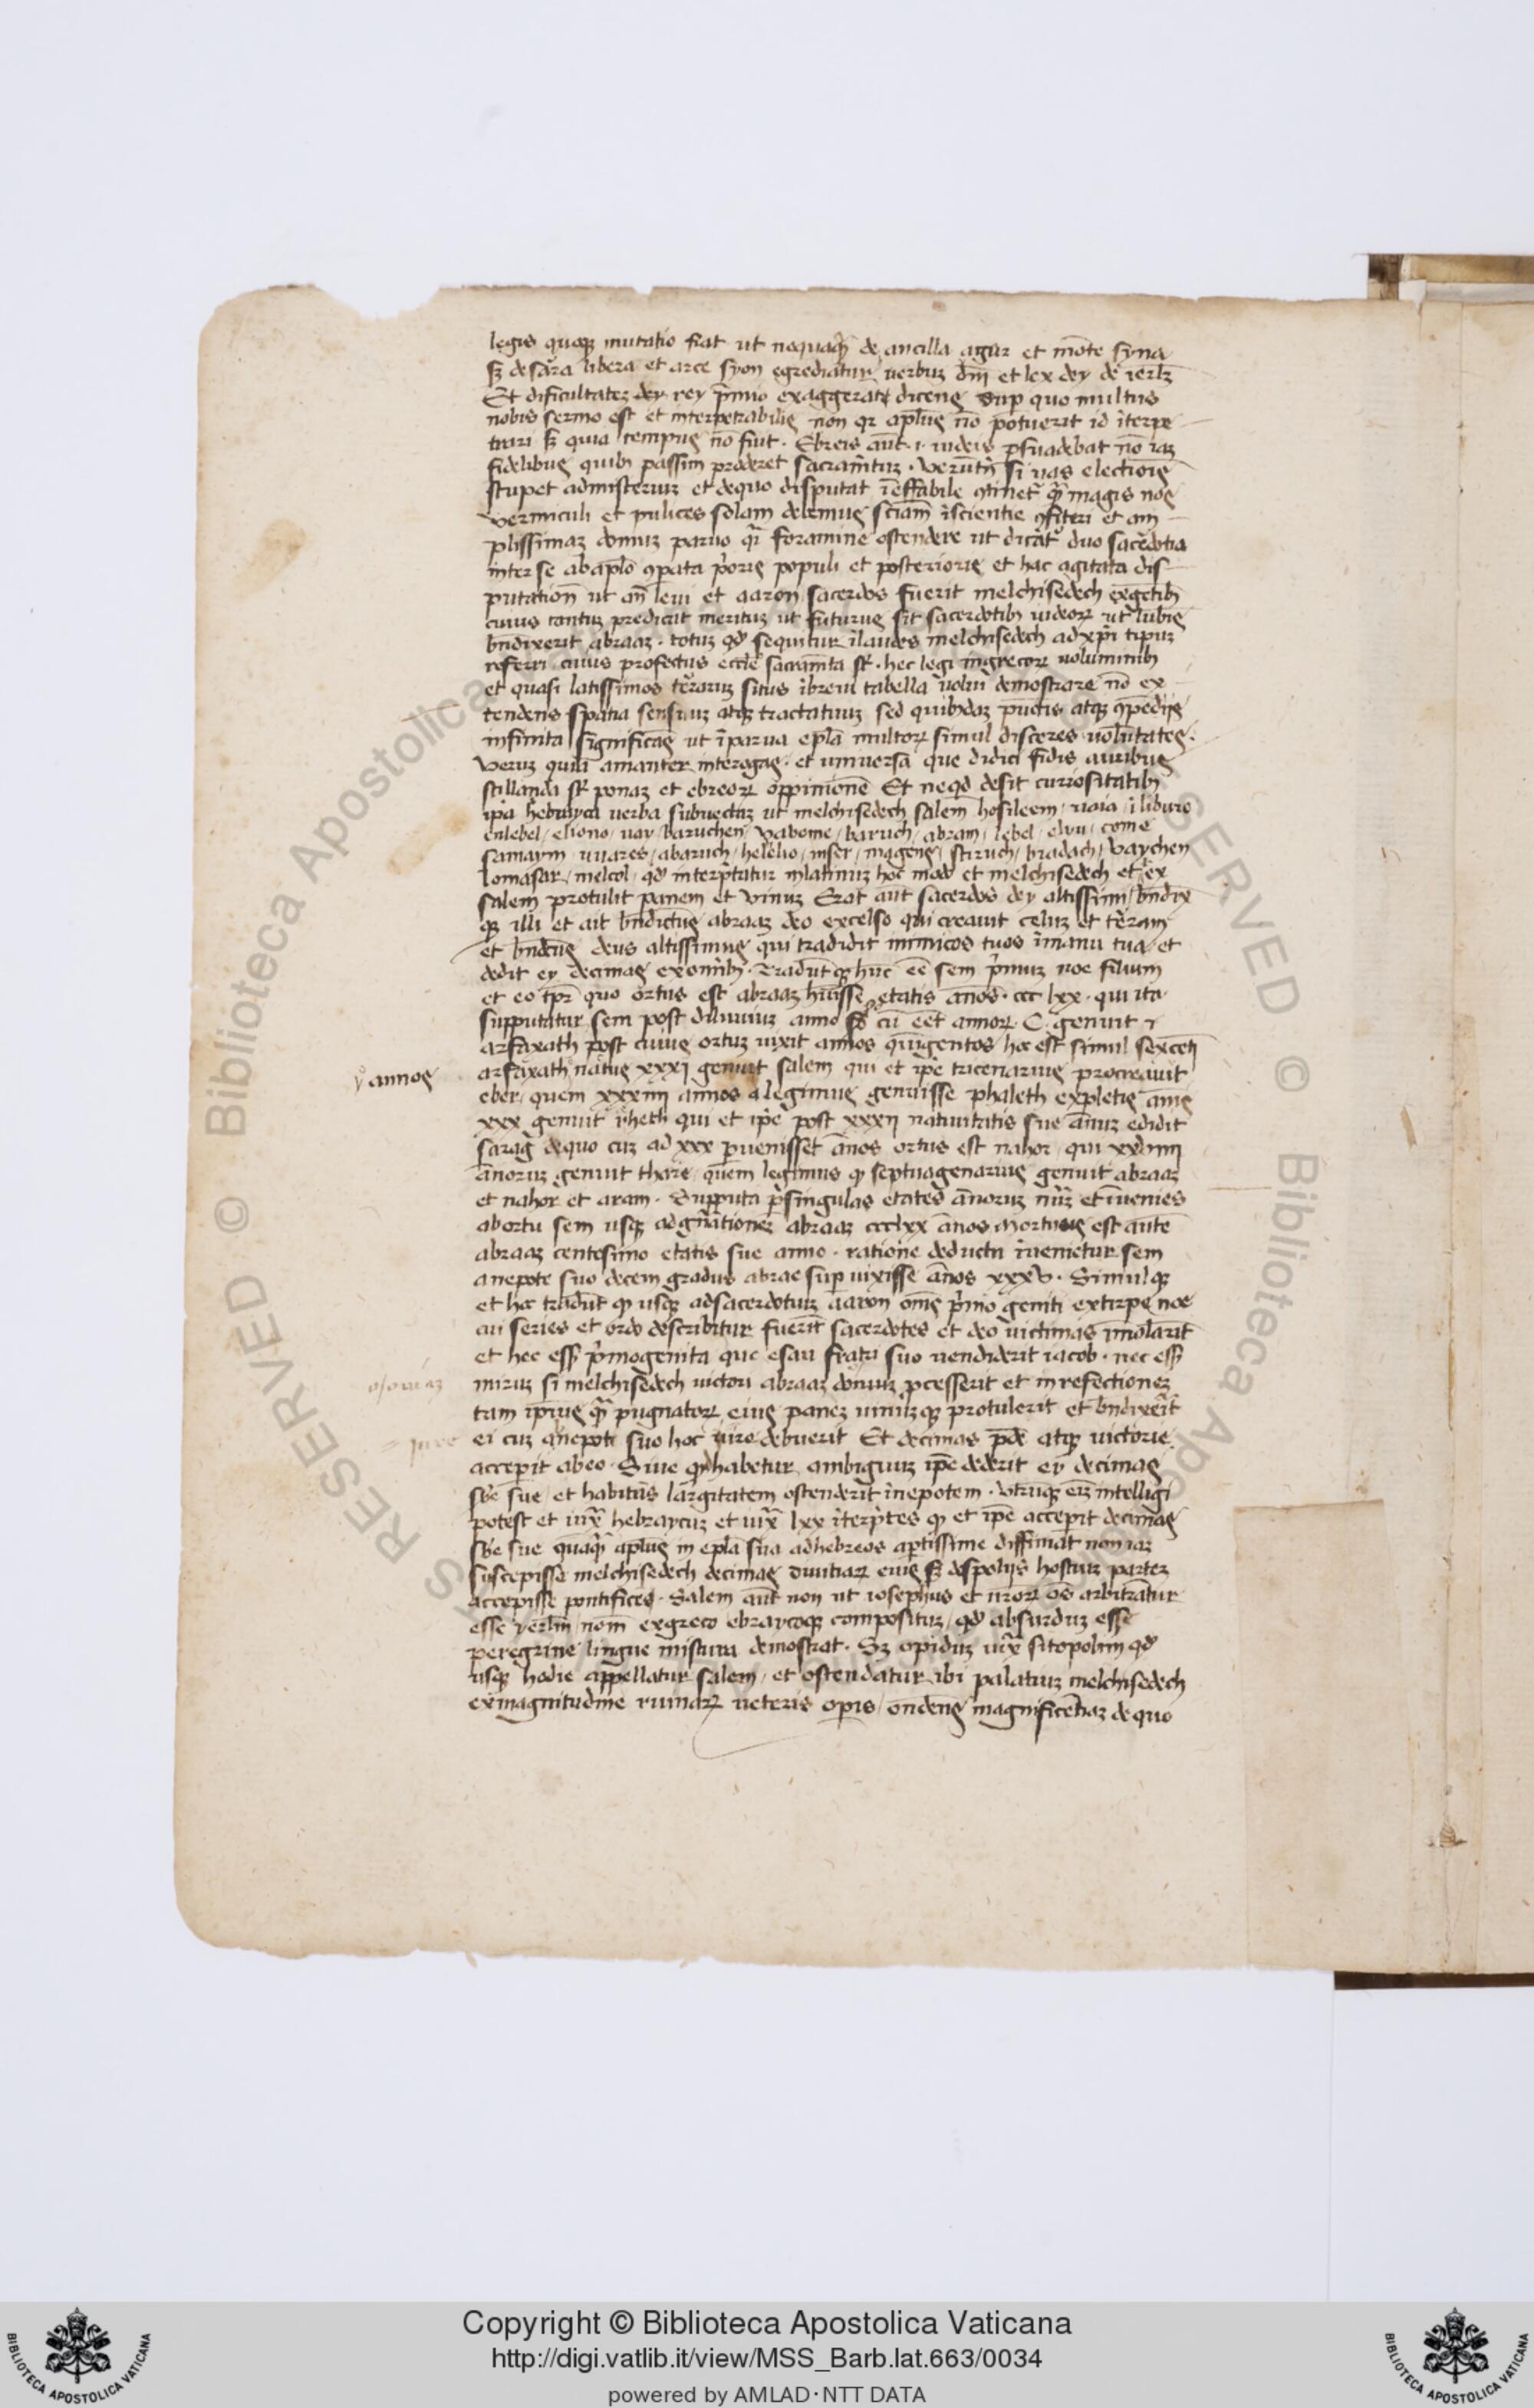 legis quoqꝫ mutatio fiat ut nequaq̃ de ancilla agar et mōte syna
sꝫ de sara libera et arce syon egrediatur uerbuꝫ dn̄i et lex dey de ierlꝫ
Et dificultateꝫ rey p̄mio exaggerat dicens Sup quo multus
nobis sermo est et interpetrabilis non qꝛ apl̄us nō potuerit id īterpe
trari sꝫ quia tempus nō fuit . Ebreis aūt .i. iudeis psuadebat nō iaꝫ
fidelibus quibꝫ passim proderet sacramētuꝫ . Verūtn̄ si uas electiois
stupet admisteriuꝫ et dequo disputat īeffabile ꝯtinet̃ q̃ magis nos
vermiculi et pulices solam debemus sciam īscientie ꝯfiteri et am
plissimaꝫ domuꝫ paruo q̃i foramine ostendere ut dicāt̃ duo sacerdotia
inter se abaplo ꝯpata p̄oris populi et posterioris et hac agitata dis
putation ut an̄ leui et aaron sacerdos fuerit melchisedech ex gētibꝫ
cuius tantuꝫ predicat merituꝫ ut futurus sit sacerdotibꝫ iudeoꝝ ut lūbis
bn̄dixerit abraaꝫ . totuꝫ qd̛ sequitur īlaudes melchisedech ad xp̄i tipuꝫ
referri cuius profectus eccl̄e sacram̄ta st̄ . hec legi ingrecoꝝ uoluminibꝫ
et quasi latissimos terraruꝫ situs ībreui tabella uolui demostrare nō ex
tendens spatia sensuuꝫ atqꝫ tractatuuꝫ sed quibꝫdaꝫ puctis atqꝫ ꝯpedijs
infinita significas ut īparua epl̄a multoꝝ simul disceres uolūtates .
Veruꝫ quia amanter interogas . et uniuersa que didici fidis auribus
stillanda st̄ ponaꝫ et ebreoꝝ oppinionē Et neqd̛ desit curiositatibꝫ
ip̄a hebrayca uerba subnectaꝫ ut melchisedech salem hosileem / uaia /
enlebel / eliono / uay / baruchen / vabome / baruch / abram / lebel / elyn / come
samaym / uuares / abaruch / helelio / inser / magens / stiruch / bradach / vaychen
lomasar / melcol / qd̛ interp̄tatur inlatinuꝫ hoc modo et melchisedech rex
salem protulit panem et vinuꝫ Erat aūt sacerdos dey altissimi / bn̄dix
qꝫ illi et ait bn̄dictus abraaꝫ deo excelso qui creauit celuꝫ et tēram
et bn̄dc̄us deus altissimus qui tradidit inimicos tuos īmanu tua / et
dedit ey decimas exomībꝫ . Tradūtqꝫ hūc eē sem p̄muꝫ noe filium
et eo tp̄r quo ortus est abraaꝫ hūisse etatis ānos . ccc lxx . qui ita
supputatur sem post diluuiuꝫ anno cū eēt annoꝝ . C . genuit
arfaxath post cuius ortuꝫ uixit annos quīgentos hoc est simul sexcētꝫ
arfaxath natus xxxj genuit salem qui et ip̄e tricenarius procreauit
v̊ annos
eber / quem xxxiiij annos legimus genuisse phaleth expletis ānis
xxx genuit rheth qui et ip̄e post xxxij natiuitatis sue ānuꝫ edidit
sarag dequo cuꝫ ad xxx puenisset ānos ortus est nahor / qui
ānoruꝫ genuit thare / quem legimus qꝫ septuagenarius genuit abraaꝫ
et nahor et aram . Supputa p singulas etates ānoruꝫ nūꝝ et īuenies
abortu sem usqꝫ adgn̄ationeꝫ abraaꝫ ccclxx ānos Mortuus est autē
abraaꝫ centesimo etatis sue anno . ratione deducta īuenietur sem
anepote suo decem gradus abrae sup uixisse ānos xxxv . Simulqꝫ
et hoc tradūt qꝫ usqꝫ adsacerdotiuꝫ aaron om̄s p̄mo geniti extirpe noe
cui series et ordo describitur fuerīt sacerdotes et deo uictimas imolarīt
et hec ess̄ p̄mogenita que esau fratri suo uendiderit iacob . nec ess̄
miruꝫ si melchisedech uictori abraaꝫ obuiuꝫ pcesserit et in refectioneꝫ
tam ip̄ius q̃ pugnatoꝝ eius paneꝫ uinuꝫqꝫ protulerit et bn̄dixerit
ei cuꝫ anepoti suo hoc iure debuerit Et decimas pdē atqꝫ uictorie
acceperit abeo . Siue qꝫ habetur ambiguuꝫ ip̄e dederit ey decimas
sbē sue / et habitus largitatem ostenderit īnepotem . Vtrūqꝫ eiꝫ intelligi
potest et iux̄ hebraycuꝫ et iux̄ lxx īterp̄tes qꝫ et ip̄e acceperit decimas
sbē sue quāq̃ apl̄us in epl̄a sua adhebreos aptissime diffiniat non iaꝫ
suscepisse melchisedech decimas diuitiaꝝ eius sꝫ despolijs hostiuꝫ parteꝫ
accepisse pontifices . Salem aūt non ut iosephus et nr̄oꝝ om̄s arbitrātur
esse yerlm / nom̄ exgreco ebraycoqꝫ compositūꝫ / qd̛ absurduꝫ esse
peregrine lingue mistura demostrat . Sꝫ opiduꝫ iux̄ sitopolim qd̛
usqꝫ hodie appellatur salem / et ostendatur ibi palatiuꝫ melchisedech
exmagnitudine ruinaꝝ ueteris opis / ondens magnificētiaꝫ de quo
© Biblioteca Apostolica Vaticana
RESERVED
Copyright © Biblioteca Apostolica Vaticana
http://digi.vatlib.it/view/MSS_Barb.lat.663/0034
powered by AMLAD·NTT DATA
BIBLIOTECA APOSTOLICA VATICANA
BIBLIOTECA APOSTOLICA VATICANA